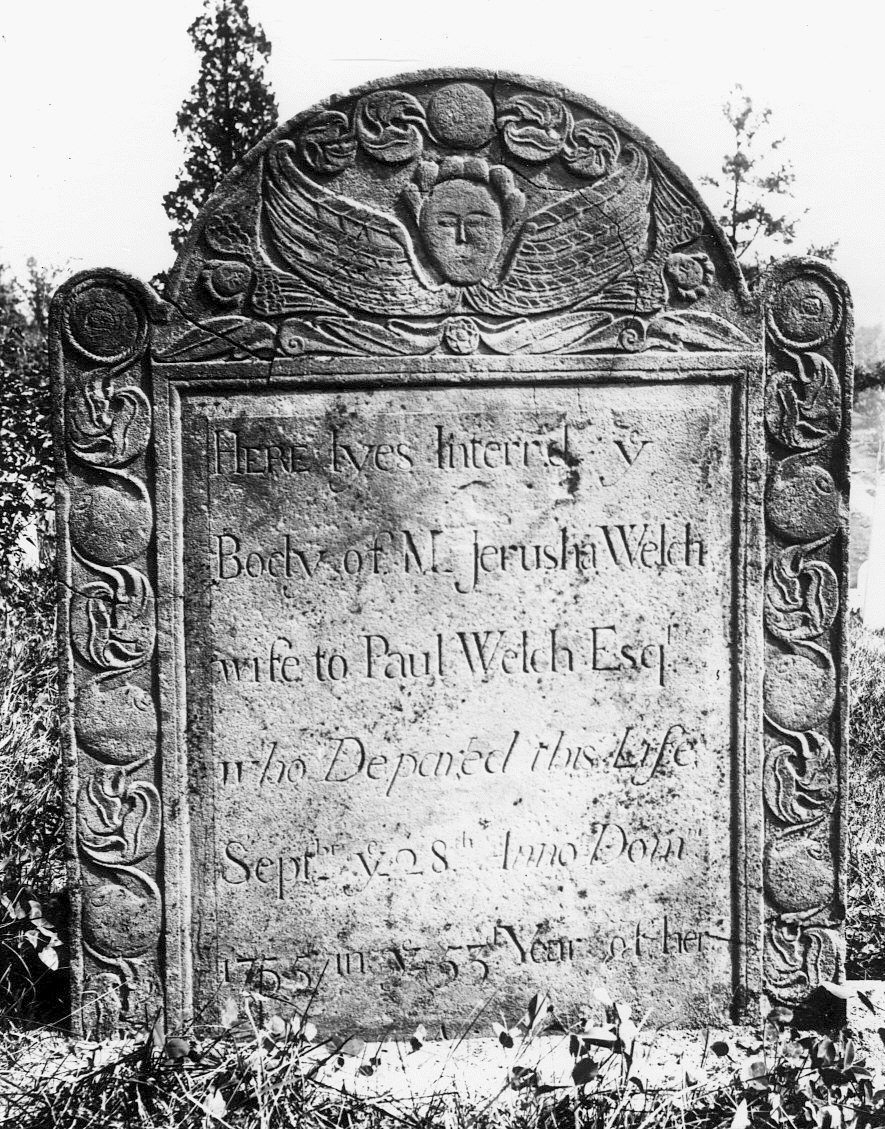 HERE lyes Interr'd yᵉ
Body of Mʳˢ Jerusha Welch
wife to Paul Welch Esqʳ
who Departed this Life
Septᵇʳ yᵉ 28ᵗʰ Anno Domⁱ
in yᵉ 53ᵈ Year of her